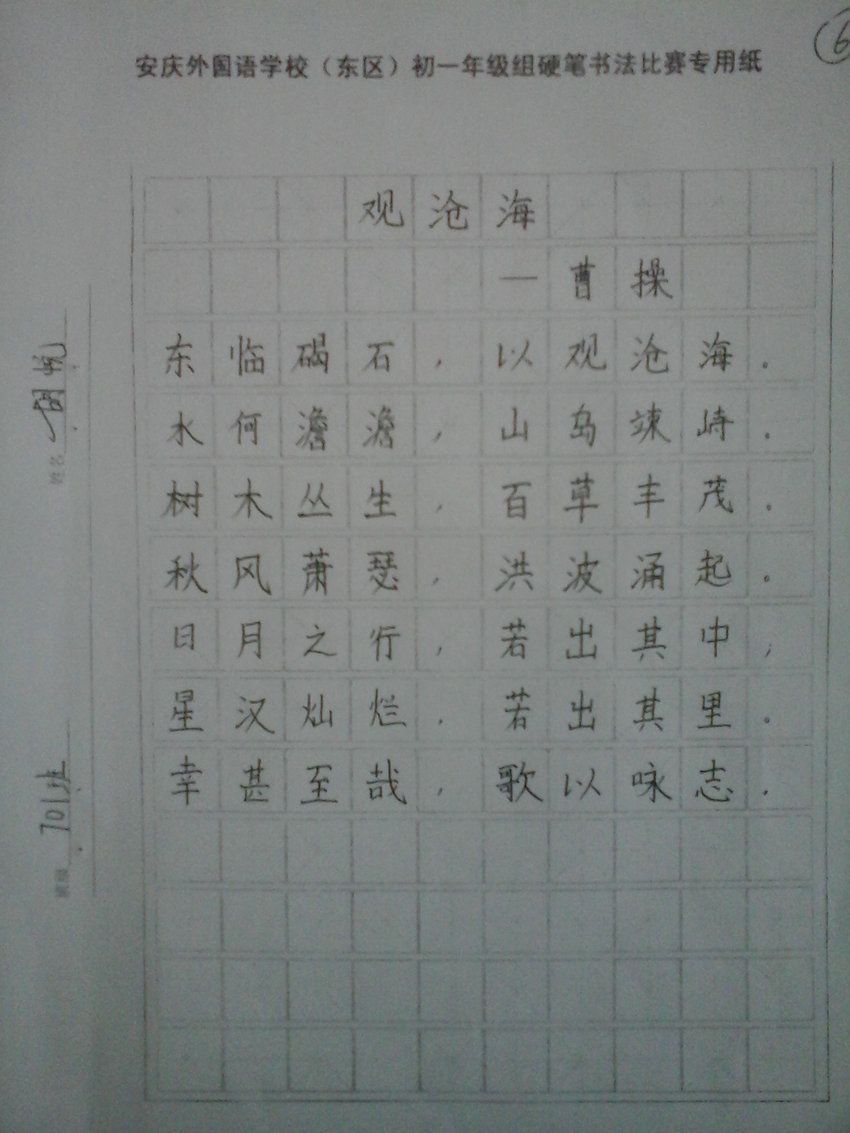 安庆外国语学校（东区）初一年级组硬笔书法比赛专用纸
6
观沧海
一曹操
东临碣石，以观沧海。
水何澹澹，山岛竦峙。
树木丛生，百草丰茂。
秋风萧瑟，洪波涌起。
日月之行，若出其中，
星汉灿烂，若出其里。
幸甚至哉，歌以咏志。
姓名
班级 701班